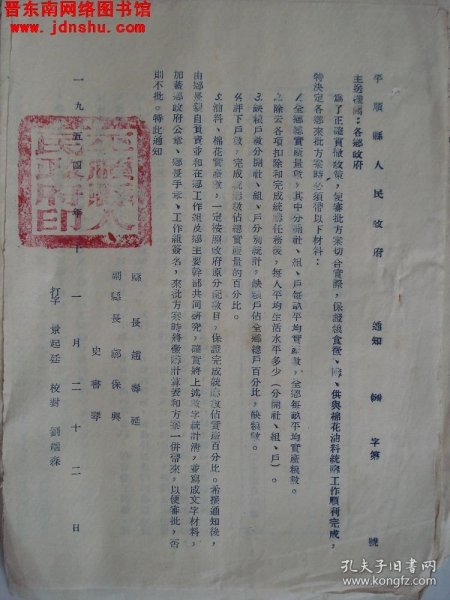 晋东南网络图书馆
www.jdnshu.com
平順縣人民政府 通知 字第 號
主送機關:各鄉政府
為了正確貫徹政策,使審批方案切合實際,保證糧食徵、購、供與棉花油料統購工作順利完成,
特決定各鄉來批方案時必須帶以下材料:
1.全鄉總實產量數,其中分開社、組、戶每畝平均實產數,全鄉每畝平均實產糧數。
2.除去各項扣除和完成統購任務後,每人平均生活水平多少(分開社、組、戶)。
3.缺糧戶數分開社、組、戶分別統計,缺糧戶佔全鄉總戶百分比,缺糧數。
4.評下戶數,完成統購數佔總實產量的百分比。
5.油料、棉花實產數,一定按照政府原分配數目,保證完成統購數佔實產百分比。希接通知後,
由鄉長親自負責並和在鄉工作組及鄉主要幹部共同研究,讓實將上述數字統計清,並寫成文字材料,
加蓋鄉政府公章、鄉長手章、工作組簽名,來批方案時將徵購計算表和方案一併帶來,以便審批,否
則不批。特此通知
縣長 趙
副縣長 郭保興
史書
一九五四年十一月二十二日
打字 景起廷 校對 劉
平順縣人民政府印
孔夫子旧书网
book.kongfz.com